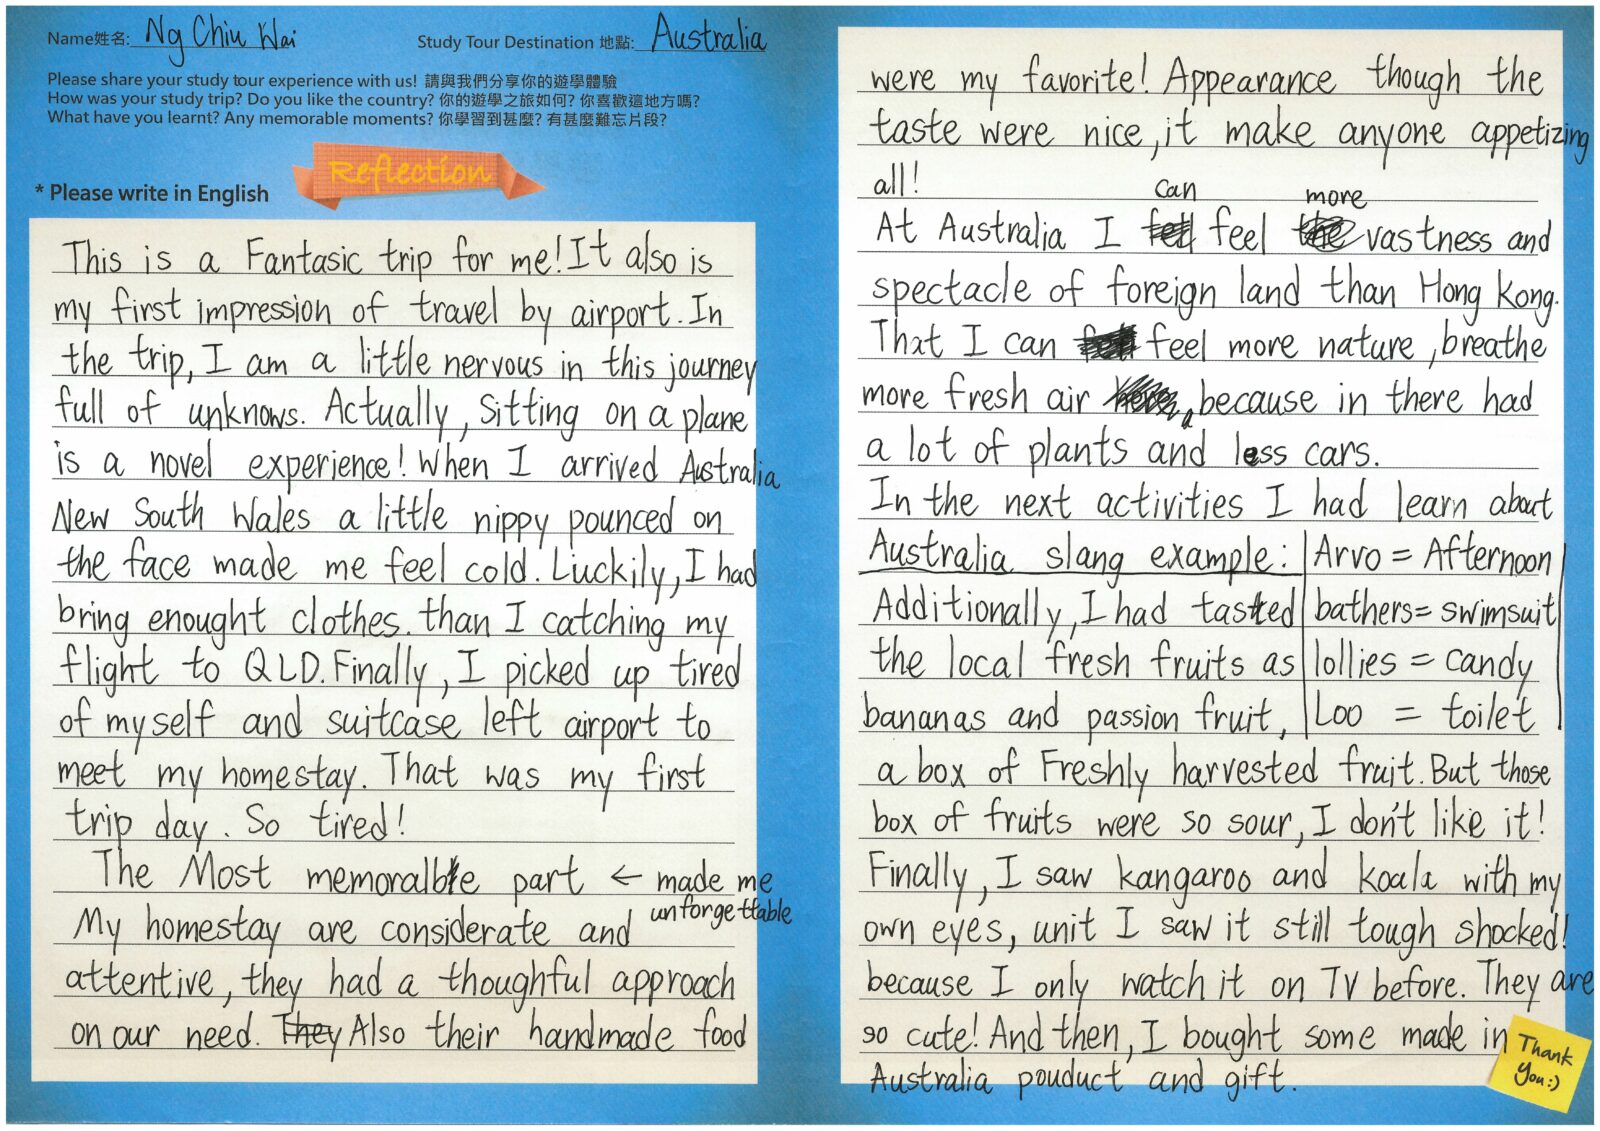 Name姓名: Ng Chiu Wai
Study Tour Destination 地點: Australia
Please share your study tour experience with us! 請與我們分享你的遊學體驗
How was your study trip? Do you like the country? 你的遊學之旅如何? 你喜歡這地方嗎?
What have you learnt? Any memorable moments? 你學習到甚麼? 有甚麼難忘片段?
Reflection
* Please write in English
This is a Fantasic trip for me! It also is
my first impression of travel by airport. In
the trip, I am a little nervous in this journey
full of unknows. Actually, sitting on a plane
is a novel experience! When I arrived Australia
New South Wales a little nippy pounced on
the face made me feel cold. Luckily, I had
bring enought clothes. than I catching my
flight to QLD. Finally, I picked up tired
of myself and suitcase left airport to
meet my homestay. That was my first
trip day. So tired!
The Most memoralble part ← made me
unforgettable
My homestay are considerate and
attentive, they had a thoughful approach
on our need. They Also their handmade food
were my favorite! Appearance though the
taste were nice, it make anyone appetizing
all!
At Australia I can feel more vastness and
spectacle of foreign land than Hong Kong.
That I can feel more nature, breathe
more fresh air, because in there had
a lot of plants and less cars.
In the next activities I had learn about
Australia slang example: Arvo = Afternoon
Additionally, I had tasted bathers = swimsuit
the local fresh fruits as lollies = candy
bananas and passion fruit, Loo = toilet
a box of Freshly harvested fruit. But those
box of fruits were so sour, I don't like it!
Finally, I saw kangaroo and koala with my
own eyes, unit I saw it still tough shocked!
because I only watch it on TV before. They are
so cute! And then, I bought some made in
Australia pouduct and gift.
Thank
You :)